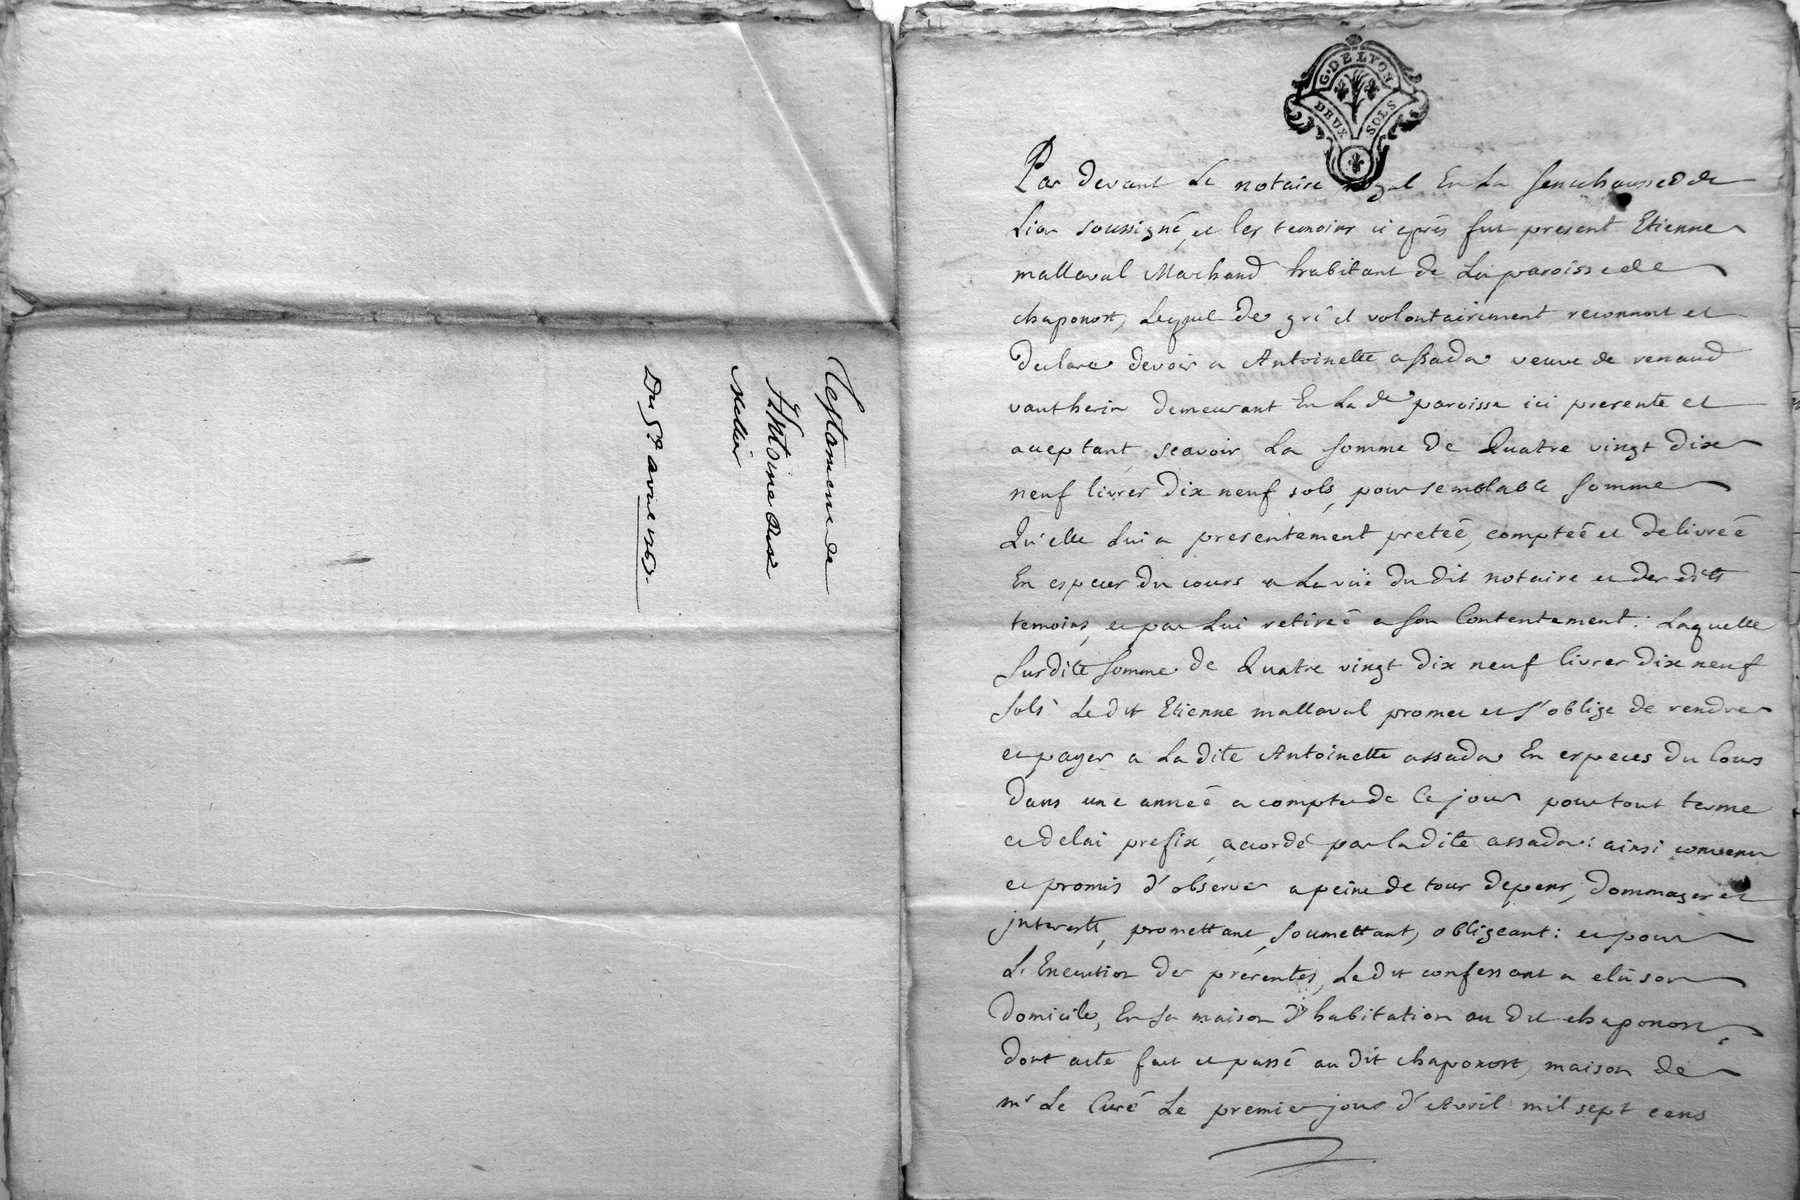 Testament de
Anthoine
Du 5e. avril 1767.
G. DE LYON
DEUX SOLS
Par devant Le notaire royal En La senechausséé de
Lion soussigné, et les temoins ci après fut present Etienne
mallaval Marchand habitant de La paroisse de
chaponost, Lequel de gré et volontairement reconnoit et
declare devoir a Antoinette assada veuve de renaud
vautherin demeurant En La de paroisse ici presente et
aceptant, scavoir La somme de Quatre vingt dix
neuf livres dix neuf sols, pour semblable somme
Qu'elle Lui a presentement pretéé, comptéé et delivréé
En especes du cours a La vüe du dit notaire et des dits
temoins, et par Lui retiréé a son Contentement: Laquelle
susdite somme de Quatre vingt dix neuf livres dix neuf
sols Le dit Etienne mallaval promet et s'oblige de rendre
et payer a La dite Antoinette assada En especes du Cours
dans une annéé a compter de Ce jour pour tout terme
et delai prefix, accordé par la dite assada: ainsi convenu
et promis d'observer a peine de tous depens, dommages et
interests, promettant, soumettant, obligeant: et pour
L'Execution des presentes, Le dit confessant a elû son
domicile, En sa maison d'habitation au dit chaponost,
dont acte fait et passé au dit chaponost, maison de
mr Le Curé Le premier jour d'Avril mil sept cens